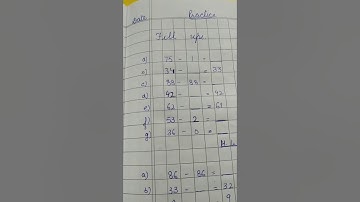 Date Practice
Fill ups
a) 75 - 1 = __
b) 34 - __ = 33
c) 38 - 38 = __
d) 42 - __ = 42
e) 62 - __ = 61
f) 53 - 2 = __
g) 36 - 0 = __
a) 86 - 86 = __
b) 33 - __ = 32